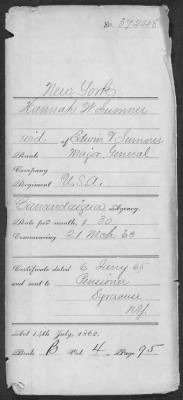 No.
New York
Hannah W Sumner
wid. of Edwin V Sumner
Rank Major General
Company
Regiment U.S.A.
Canandaigua Agency.
Rate per month, $ 30
Commencing 21 Mch 63
Certificate dated 6 Feby 65
and sent to Pensioner
Syracuse
N.Y.
Act 14th July, 1862.
Book B Vol. 4 Page 95